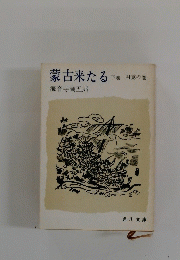 蒙古来たる 下巻
海音寺潮五郎
角川文庫